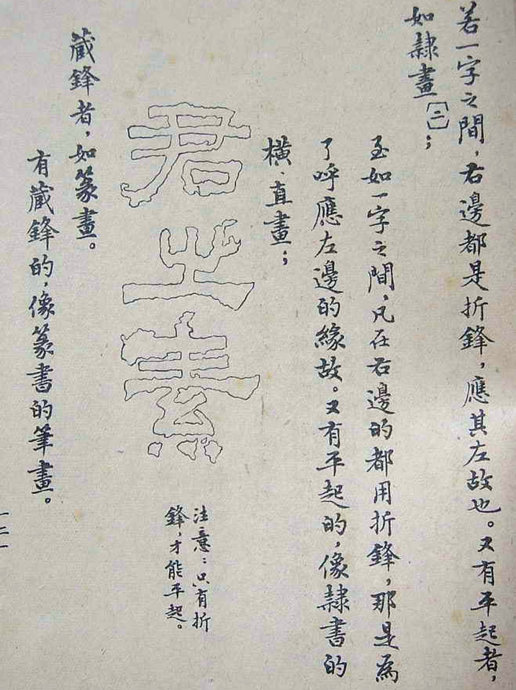 若一字之間，右邊都是折鋒，應其左故也。又有平起者，
如隷畫〔二〕；
至如一字之間，凡在右邊的都用折鋒，那是為
了呼應左邊的緣故。又有平起的，像隷書的
橫、直畫；
君之素
注意：只有折
鋒，才能平起。
藏鋒者，如篆畫。
有藏鋒的，像篆書的筆畫。